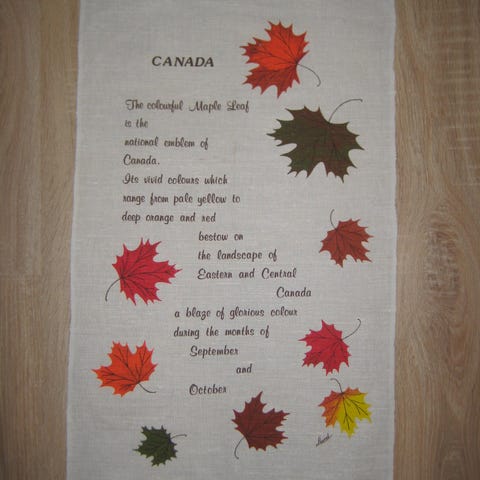 CANADA
The colourful Maple Leaf
is the
national emblem of
Canada.
Its vivid colours which
range from pale yellow to
deep orange and red
bestow on
the landscape of
Eastern and Central
Canada
a blaze of glorious colour
during the months of
September
and
October